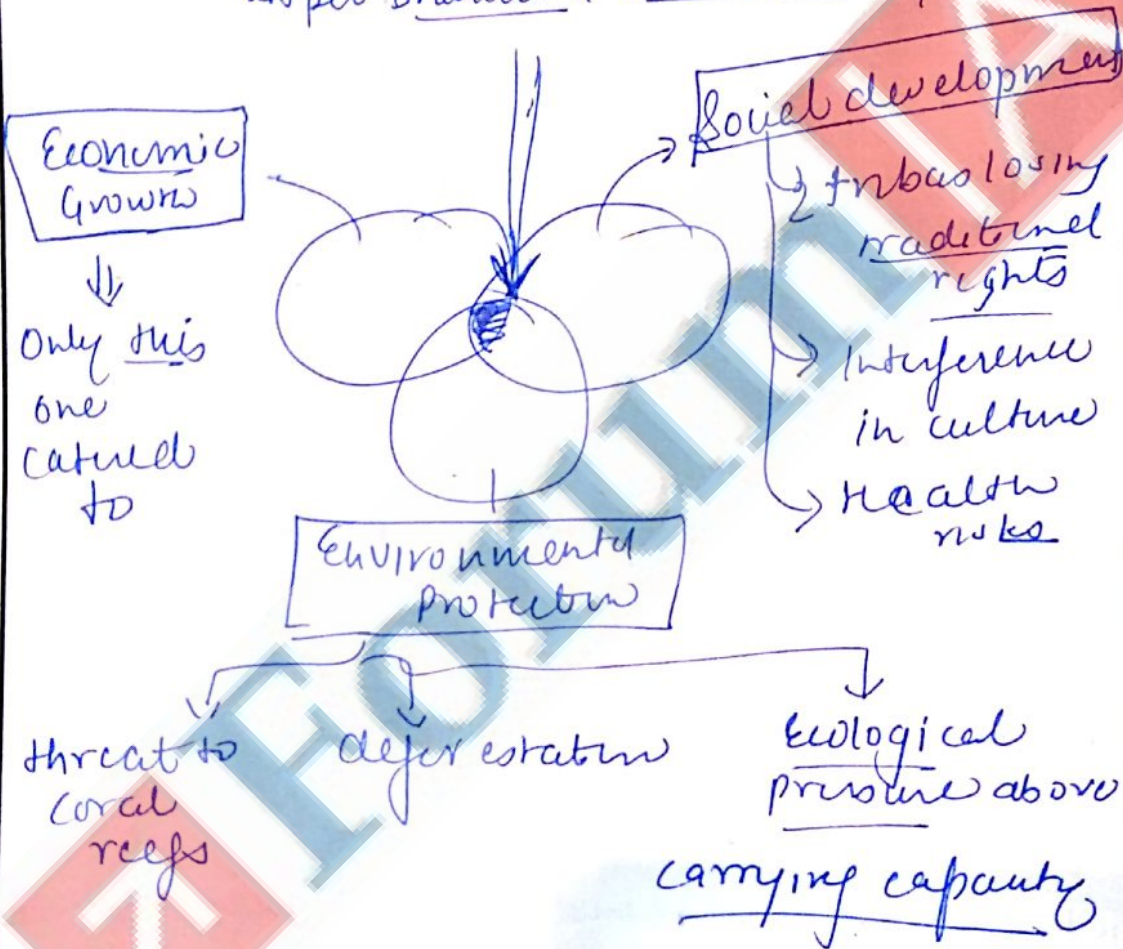 as per
Economic
Growth
Only this
one
catered
to
Social development
tribas losing
traditional
rights
Interference
in culture
Health
risks
Environmental
Protection
threat to
coral
reefs
deforestation
Ecological
pressure above
carrying capacity
Forum IA